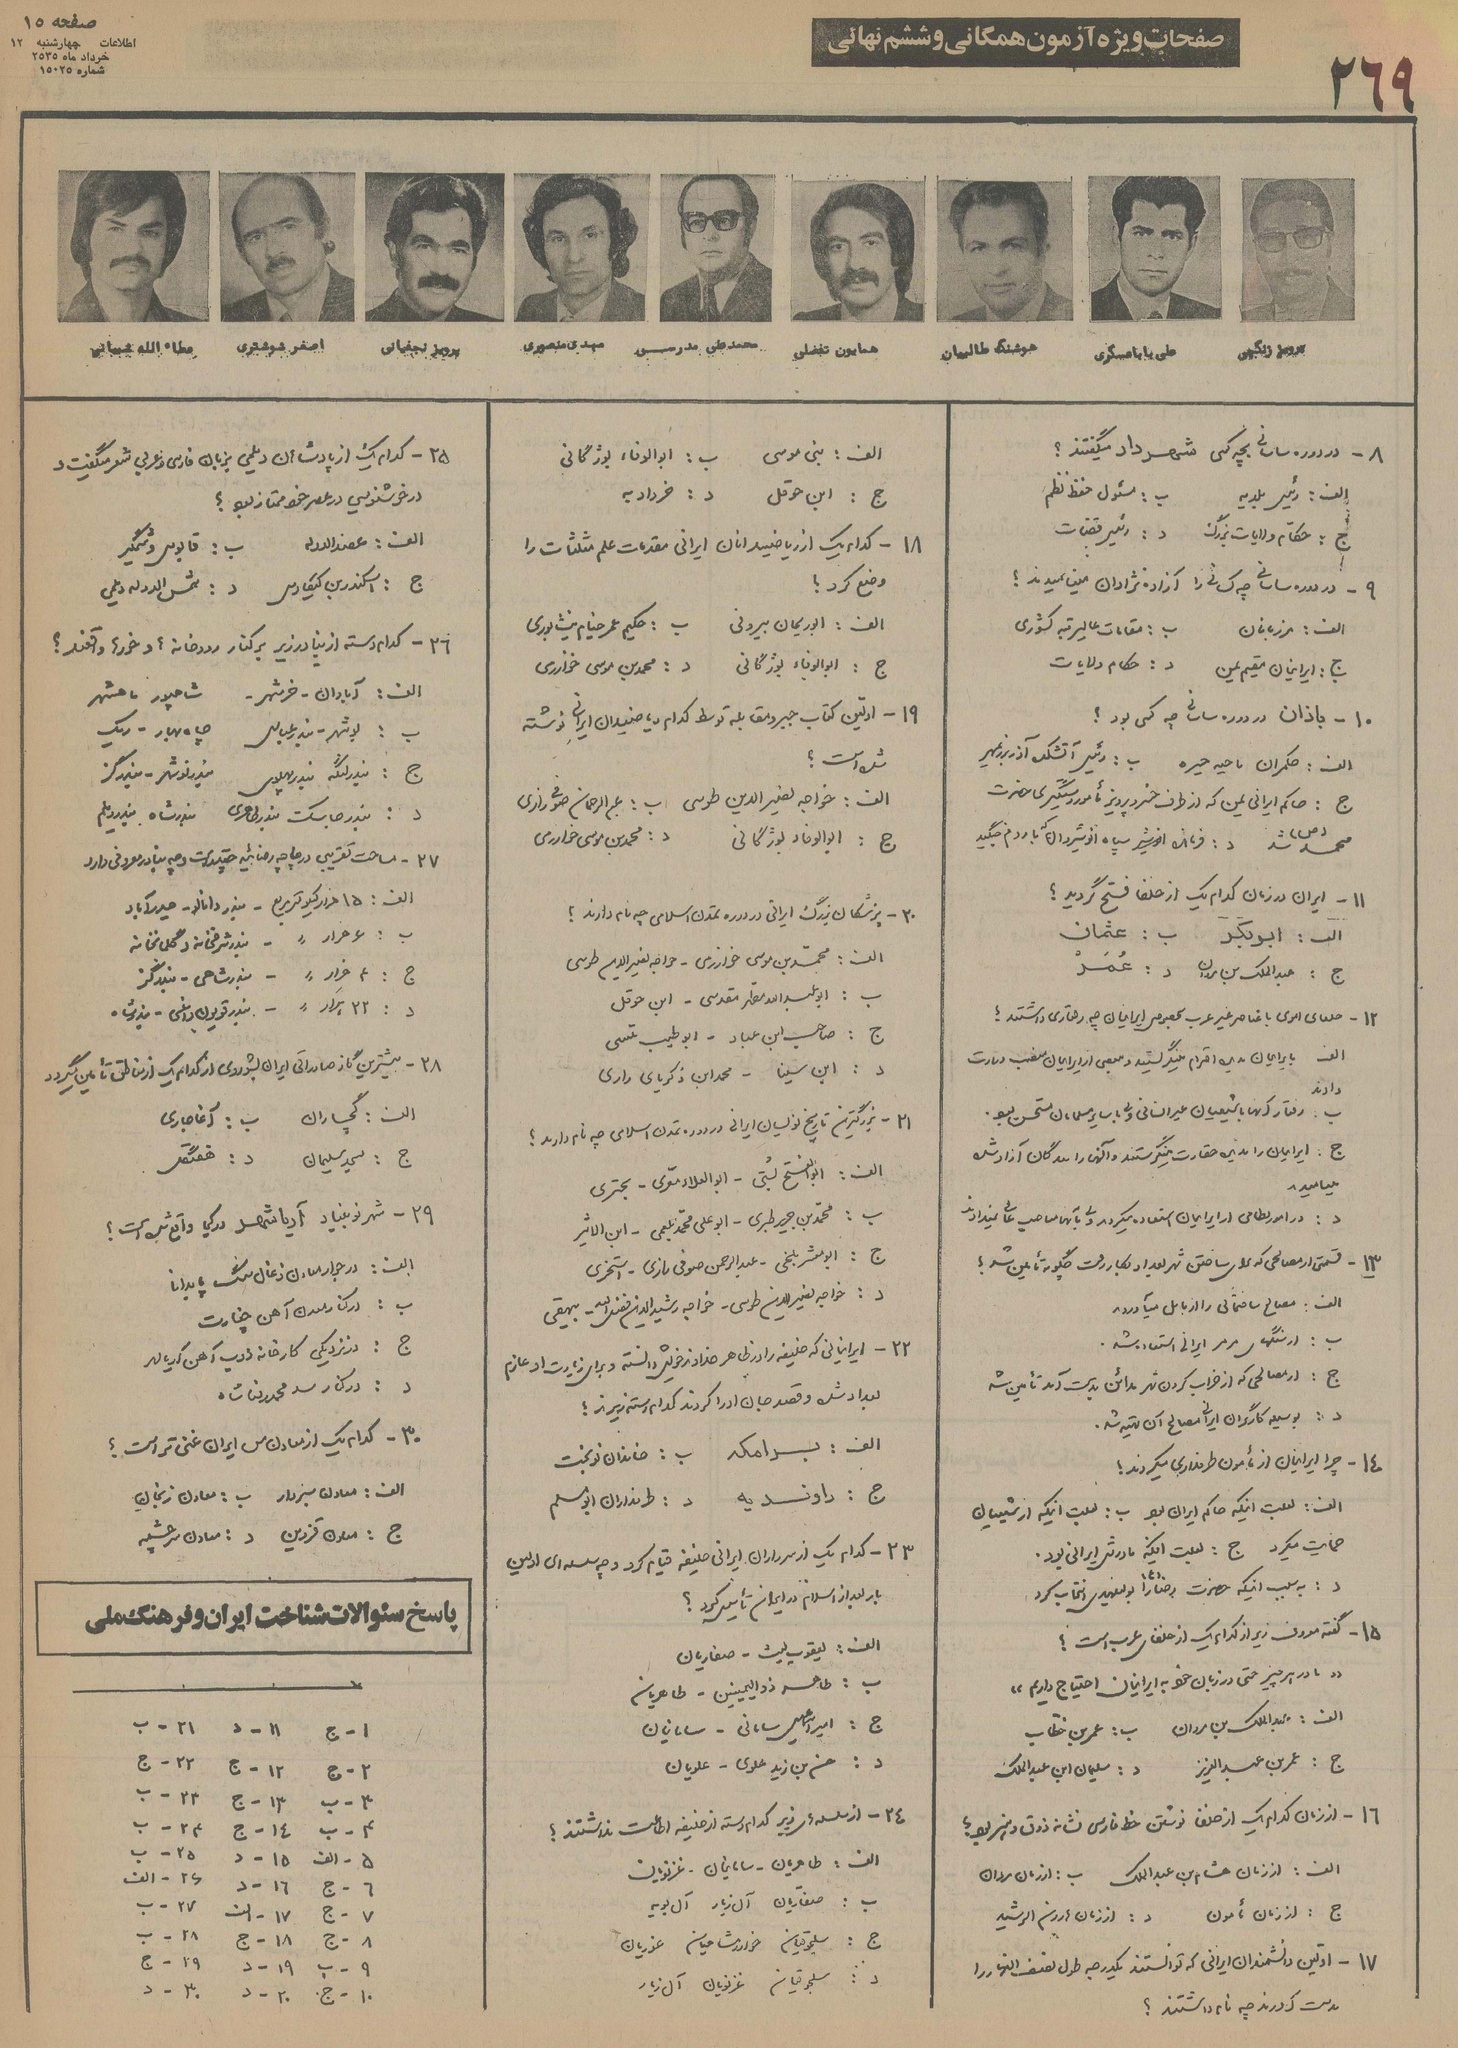 صفحه ۱۵
اطلاعات چهارشنبه ۱۲
خرداد ماه ۲۵۳۵
شماره ۱۵۰۲۵
صفحات ویژه آزمون همگانی و ششم نهائی
۲۶۹
پرویز زنگنهی
علی باباعسگری
هوشنگ طالبیان
همایون تفضلی
محمدعلی مدرسی
مهدی منصوری
پرویز نجفیانی
اصغر شوشتری
عطاء الله شیبانی
۸- در دوره ساسانی بچه کسی شهرداد میگفتند ؟
الف : رئیس بلدیه ب : مسئول حفظ نظم
ج : حکام ولایات بزرگ د : رئیس قضات
۹- در دوره ساسانی چه کسانی را آزاده نژادان مینامیدند ؟
الف : مرزبانان ب : مقامات عالیرتبه کشوری
ج : ایرانیان مقیم یمن د : حکام ولایات
۱۰- باذان در دوره ساسانی چه کسی بود ؟
الف : حکمران ناحیه حیره ب : رئیس آتشکده آذربرزین‌مهر
ج : حاکم ایرانی یمن که از طرف خسرو پرویز مأمور دستگیری حضرت
محمد (ص) شد د : فرمانده سپاه انوشیروان که با روم جنگید
۱۱- ایران در زمان کدام یک از خلفا فتح گردید ؟
الف : ابوبکر ب : عثمان
ج : عبدالملک بن مروان د : عُمَر
۱۲- خلفای اموی با عناصر غیر عرب بخصوص ایرانیان چه رفتاری داشتند ؟
الف با ایرانیان بدیده احترام مینگریستند و بعضی از ایرانیان منصب وزارت
دادند
ب : رفتار آنها با شیعیان غیر انسانی ولی با سایر مسلمانان مستحسن بود .
ج : ایرانیان را بدیده حقارت مینگریستند و آنها را بندگان آزاد شده
مینامیدند
د : در امور نظامی از ایرانیان استفاده میکردند ولی بآنها مناصب عالی نمیدادند
۱۳- قسمتی از مصالحی که برای ساختن شهر بغداد بکار رفت چگونه تأمین شد ؟
الف : مصالح ساختمانی را از بابل میآوردند
ب : از سنگهای مرمر ایرانی استفاده شد .
ج : از مصالحی که از خراب کردن شهر مدائن بدست آمد تأمین شد
د : بوسیله کارگران ایرانی مصالح آن تهیه شد .
۱۴- چرا ایرانیان از مأمون طرفداری میکردند ؟
الف : بعلت اینکه حاکم ایران بود ب : بعلت اینکه از شیعیان
حمایت میکرد ج : بعلت اینکه مادرش ایرانی بود .
د : به سبب اینکه حضرت رضا (ع) را بولیعهدی انتخاب کرد
۱۵- گفته معروف زیر از کدام یک از خلفای عرب است ؟
«ما در هر چیز حتی در زبان خود به ایرانیان احتیاج داریم»
الف : عبدالملک بن مروان ب : عمر بن خطاب
ج : عمر بن عبدالعزیز د : سلیمان ابن عبدالملک
۱۶- از زمان کدام یک از خلفا نوشتن خط فارسی نشانه ذوق و هنر بود ؟
الف : از زمان هشام بن عبدالملک ب : از زمان مروان
ج : از زمان مأمون د : از زمان هارون الرشید
۱۷- اولین دانشمندان ایرانی که توانستند یکدرجه طول نصف النهار را
بدست آورند چه نام داشتند ؟
الف : بنی موسی ب : ابوالوفاء بوزگانی
ج : ابن حوقل د : خردادبه
۱۸- کدام یک از ریاضیدانان ایرانی مقدمات علم مثلثات را
وضع کرد ؟
الف : ابوریحان بیرونی ب : حکیم عمر خیام نیشابوری
ج : ابوالوفاء بوزگانی د : محمد بن موسی خوارزمی
۱۹- اولین کتاب جبر و مقابله توسط کدام ریاضیدان ایرانی نوشته
شده است ؟
الف : خواجه نصیرالدین طوسی ب : عبدالرحمن صوفی رازی
ج : ابوالوفاء بوزگانی د : محمد بن موسی خوارزمی
۲۰- پزشکان بزرگ ایرانی در دوره تمدن اسلامی چه نام دارند ؟
الف : محمد بن موسی خوارزمی - خواجه نصیرالدین طوسی
ب : ابوعبدالله مقدسی - ابن حوقل
ج : صاحب ابن عباد - ابوطیب متنبی
د : ابن سینا - محمد ابن زکریای رازی
۲۱- بزرگترین تاریخ نویسان ایرانی در دوره تمدن اسلامی چه نام دارند ؟
الف : ابوالفتح بُستی - ابوالعلاء معری - بحتری
ب : محمد بن جریر طبری - ابوعلی محمد بلعمی - ابن الاثیر
ج : ابومعشر بلخی - عبدالرحمن صوفی رازی - استخری
د : خواجه نصیرالدین طوسی - خواجه رشیدالدین فضل الله - بیهقی
۲۲- ایرانیانی که خلیفه را در ظاهر خداوند خویش دانسته و برای زیارت او عازم
بغداد شده و قصد جان او را کردند کدام دسته زیرند ؟
الف : برامکه ب : خاندان نوبخت
ج : راوندیه د : طرفداران ابومسلم
۲۳- کدام یک از سرداران ایرانی خلیفه قیام کرد و چه سلسله‌ای اولین
بار بعد از اسلام در ایران تأسیس کرد ؟
الف : یعقوب لیث - صفاریان
ب : طاهر ذوالیمینین - طاهریان
ج : امیر اسمعیل سامانی - سامانیان
د : حسن بن زید علوی - علویان
۲۴- از سلسله‌های زیر کدام دسته از خلیفه اطاعت نداشتند ؟
الف : طاهریان - سامانیان - غزنویان
ب : صفاریان آل زیار آل بویه
ج : سلجوقیان خوارزمشاهیان غوریان
د : سلجوقیان غزنویان آل زیار
۲۵- کدام یک از پادشاهان دیلمی بزبان فارسی و عربی شعر میگفت و
در خوشنویسی در عصر خود ممتاز بود ؟
الف : عضدالدوله ب : قابوس وشمگیر
ج : اسکندر بن کیکاوس د : شمس الدوله دیلمی
۲۶- کدام دسته از بنادر زیر بر کنار رودخانه‌ها و خورها واقعند ؟
الف : آبادان - خرمشهر - شاهپور ماهشهر
ب : بوشهر - بندرعباس چاه بهار - ریگ
ج : بندر لنگه بندر پهلوی بندر نوشهر - بندر گز
د : بندر جاسک بندر طاهری بندر شاه بندر دیلم
۲۷- مساحت تقریبی دریاچه رضائیه چقدر است و چه بنادر معروفی دارد
الف : ۱۵ هزار کیلومتر مربع - بندر دانالو - حیدرآباد
ب : ۶ هزار " - بندر شرفخانه و گلمانخانه
ج : ۴ هزار " - بندر شاهی - بندر گز
د : ۲۲ هزار " - بندر شاه
۲۸- بیشترین گاز صادراتی ایران بشوروی از کدام یک از مناطق تأمین میگردد
الف : گچساران ب : آغاجاری
ج : مسجد سلیمان د : هفتگل
۲۹- شهر نوبنیاد آریاشهر در کجا واقع شده است ؟
الف : در جوار معادن زغال سنگ پابدانا
ب : در کنار معدن آهن چغارت
ج : در نزدیکی کارخانه ذوب آهن آریامهر
د : در کنار سد محمدرضاشاه
۳۰- کدام یک از معادن مس ایران غنی‌تر است ؟
الف : معادن سبزوار ب : معادن زنجان
ج : معادن قزوین د : معادن سرچشمه
پاسخ سئوالات شناخت ایران و فرهنگ ملی
۱- ج ۱۱- د ۲۱- ب
۲- ج ۱۲- ج ۲۲- ج
۳- ب ۱۳- ج ۲۳- ب
۴- ب ۱۴- ج ۲۴- ب
۵- الف ۱۵- د ۲۵- ب
۶- ج ۱۶- د ۲۶- الف
۷- ج ۱۷- الف ۲۷- ب
۸- ج ۱۸- ج ۲۸- ب
۹- ب ۱۹- د ۲۹- ج
۱۰- ج ۲۰- د ۳۰- د